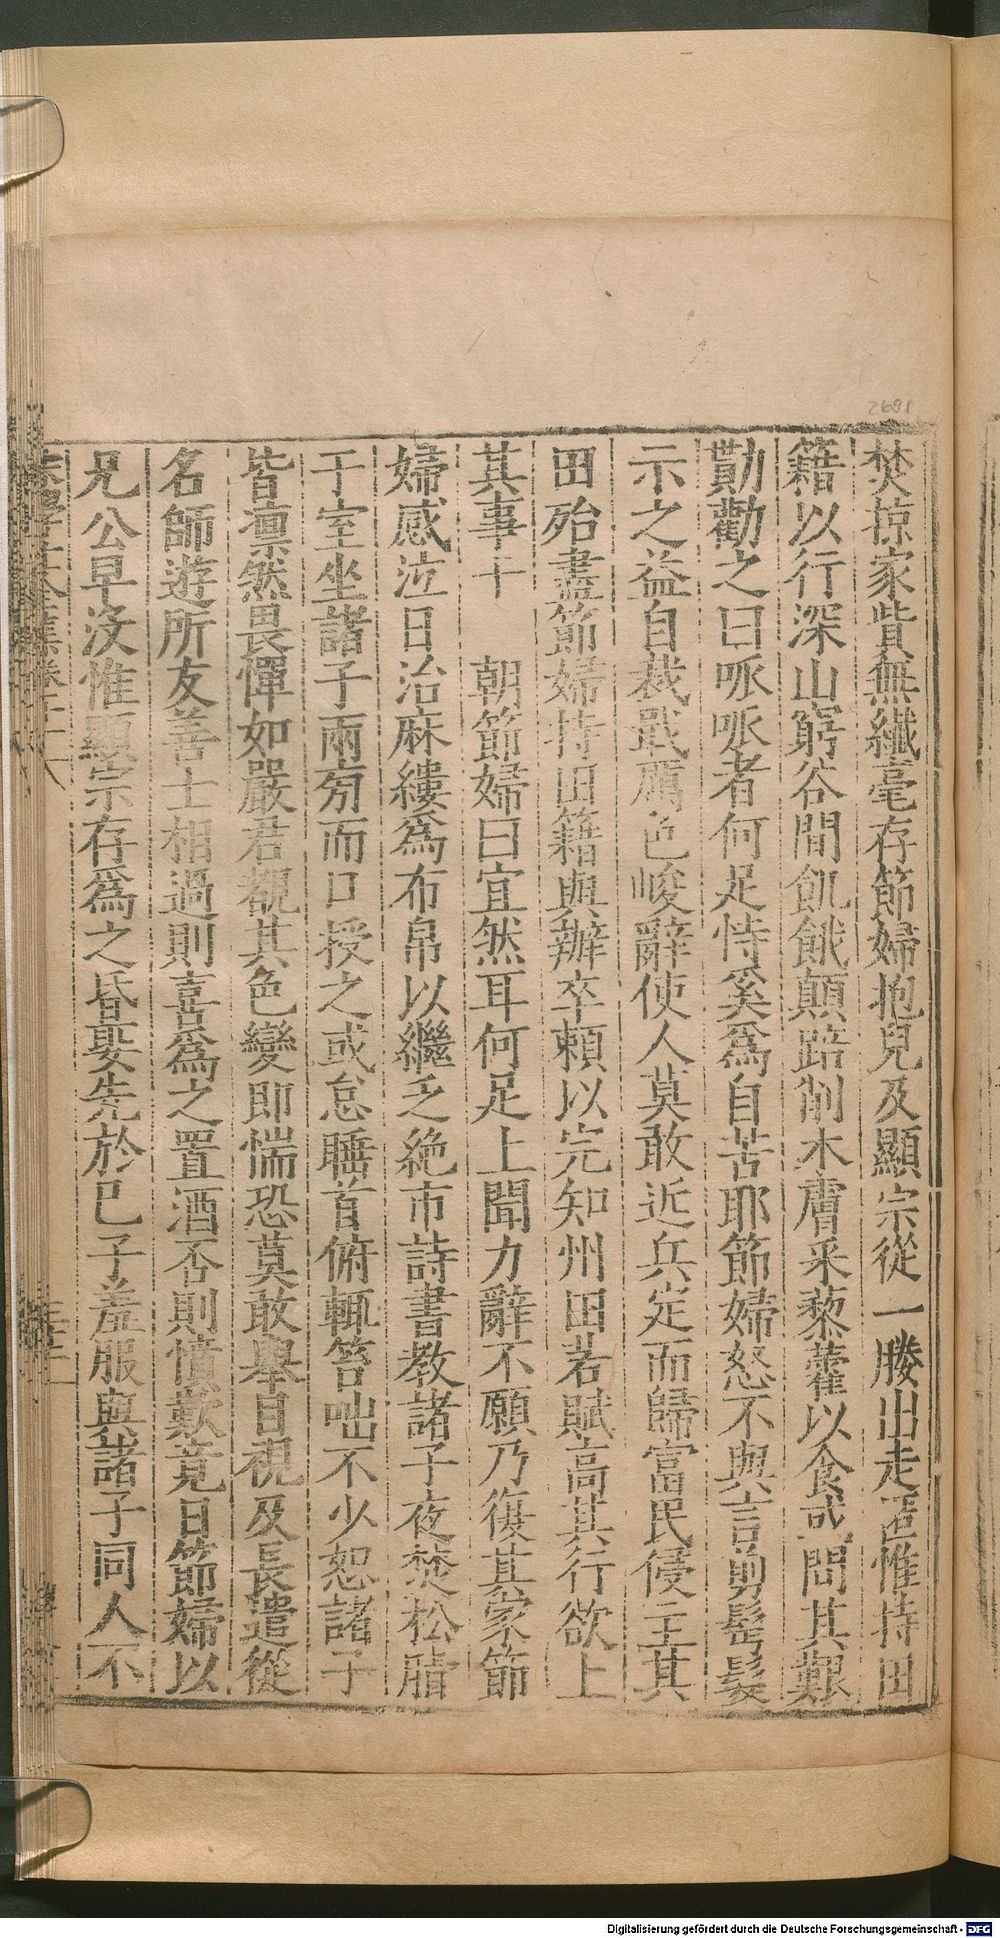 焚掠家貲無纖毫存節婦抱兒及顯宗從一媵出走語惟持田
籍以行深山窮谷間飢餓顛踣削木膚采藜藿以食或問其艱
勩勸之曰哌哌者何足恃奚爲自苦耶節婦怒不與言剪髩髮
示之益自裁戢厲色峻辭使人莫敢近兵定而歸富民侵主其
田殆盡節婦持田籍與辦卒賴以完知州田若賦高其行欲上
其事于　朝節婦曰宜然耳何足上聞力辭不願乃復其家節
婦感泣日治麻縷爲布帛以繼乏絶市詩書教諸子夜焚松脂
于室坐諸子兩旁而口授之或怠睡首俯輒笞咄不少恕諸子
皆凛然畏憚如嚴君覩其色變即惴恐莫敢舉目視及長遣從
名師遊所友善士相過則喜爲之置酒否則憤歎竟日節婦以
兄公早沒惟顯宗存爲之昏娶先於己子羞服與諸子同人不
2691
Digitalisierung gefördert durch die Deutsche Forschungsgemeinschaft - DFG